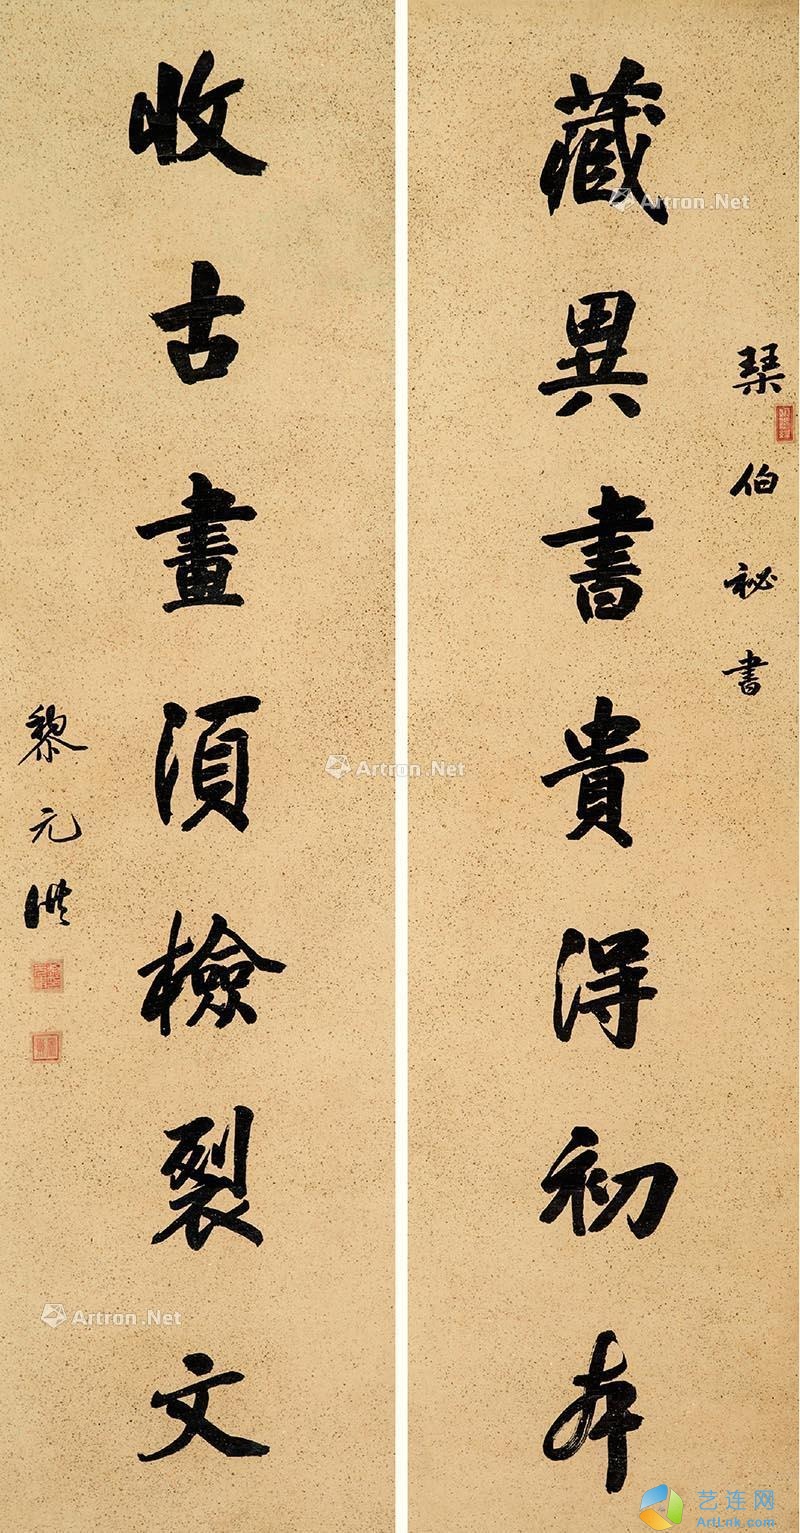 琹伯祕書
藏異書貴得初本
收古畫須檢裂文
黎元洪
Artron.Net
Artron.Net
Artron.Net
艺连网
ArtLink.com